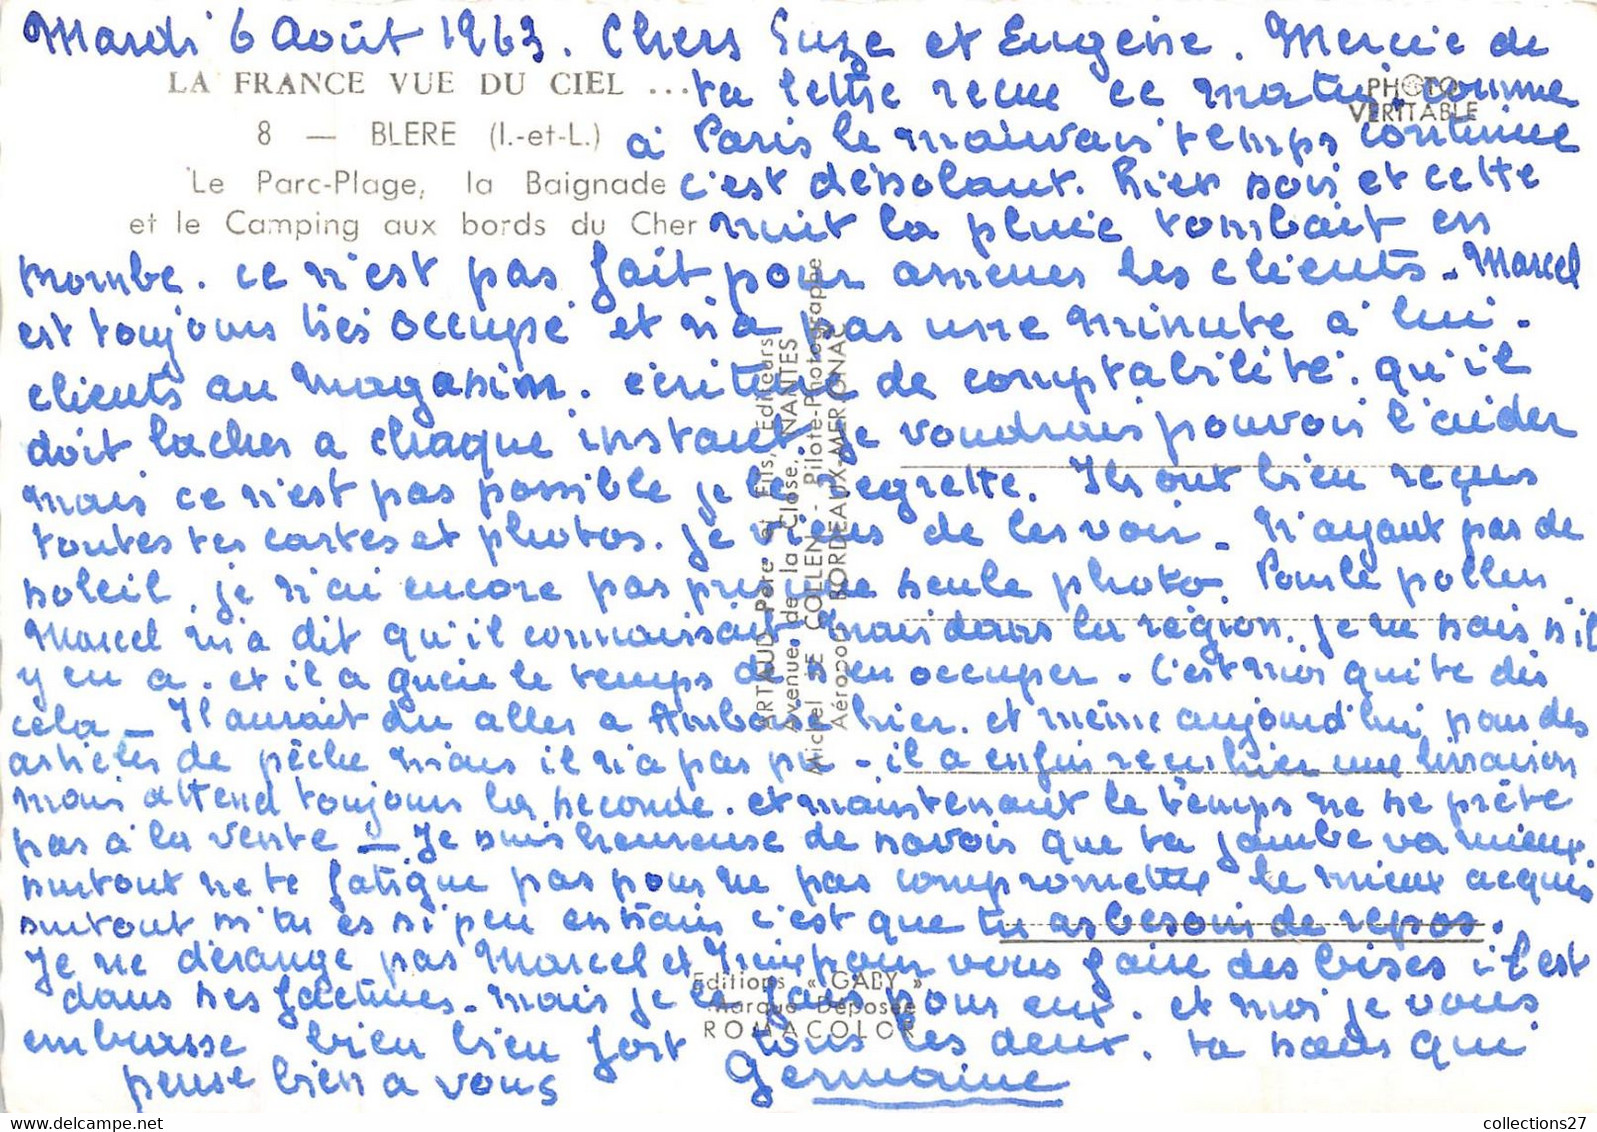 Mardi 6 Août 1963. Chers Suze et Eugène. Mercie de
LA FRANCE VUE DU CIEL ... ta lettre recue ce matin. comme
PHOTO VERITABLE
8 — BLERE (I.-et-L.) à Paris le mauvais temps continue
Le Parc-Plage, la Baignade c'est désolant. Hier soir et cette
et le Camping aux bords du Cher nuit la pluie tombait en
trombe. ce n'est pas fait pour amener les clients - Marcel
est toujours très occupé et n'a pas une minute à lui.
clients au magasin. écriture de comptabilité. qu'il
doit lacher a chaque instant. Je voudrais pouvoir l'aider
mais ce n'est pas possible je le regrette. Ils ont bien reçus
toutes tes cartes et photos. je viens de les voir - N'ayant pas de
soleil, je n'ai encore pas pris une seule photo. Pour le pollen
Marcel m'a dit qu'il connaissait mais dans la région. je ne sais s'il
y en a. et il a guère le temps de s'en occuper. C'est moi qui te dis
cela - Il aurait du aller a Amboise hier. et même aujourd'hui pour des
articles de pêche mais il n'a pas pu - il a enfin recu hier une livraison
mais attend toujours la seconde. et maintenant le temps ne se prête
pas à la vente - Je suis heureuse de savoir que ta jambe va mieux.
surtout ne te fatigue pas pour ne pas compromettre le mieux acquis
surtout si tu es si peu entrain c'est que tu as besoin de repos.
Je ne dérange pas Marcel et pour vous faire des bises il est
dans ses factures - mais je le fais pour eux. et moi je vous
embrasse bien bien fort tous les deux. ta soeur qui
pense bien a vous Germaine
ARTAUD Père et Fils, Editeurs
Avenues de la Close, NANTES
Michel LE COLLEN - Pilote-Photographe
Aéroport BORDEAUX-MERIGNAC
Editions « GABY »
Marque Déposée
ROMACOLOR
collections27